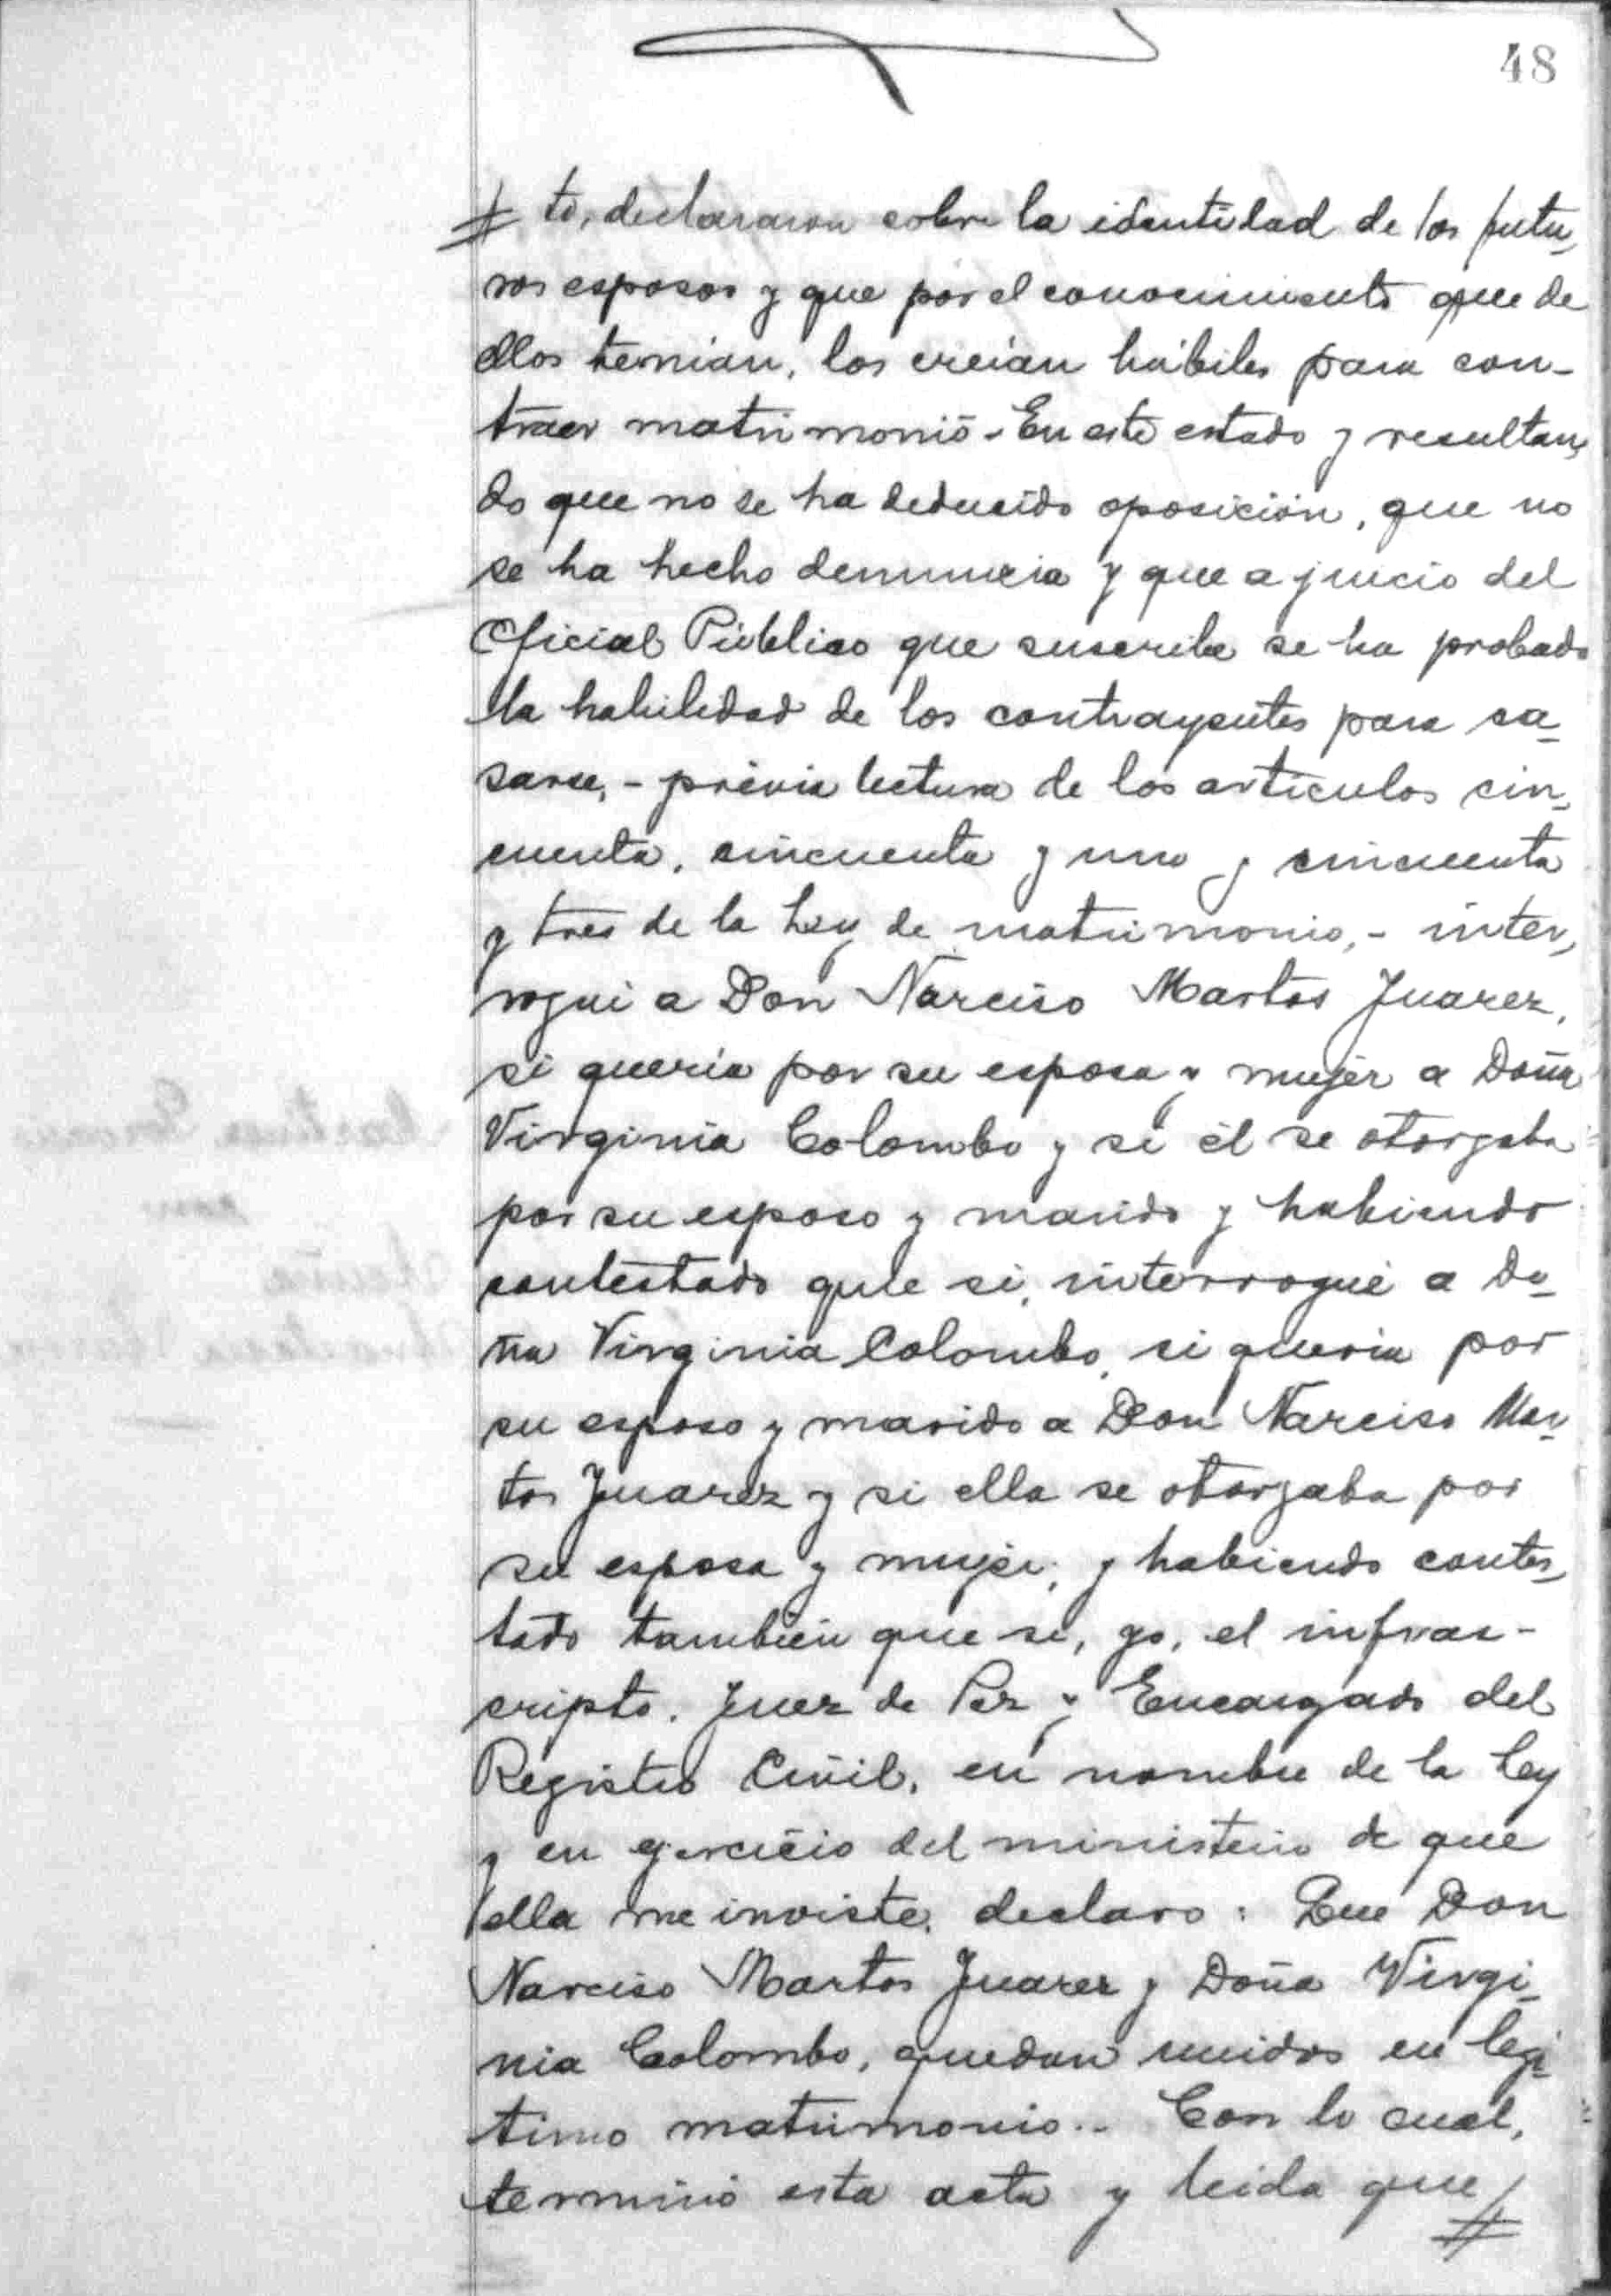 48
to, declararon sobre la identidad de los futu-
ros esposos y que por el conocimiento que de
ellos tenian, los creian hábiles para con-
traer matrimonio - En este estado y resultan-
do que no se ha deducido oposición, que no
se ha hecho denuncia y que a juicio del
Oficial Público que suscribe se ha probado
la habilidad de los contrayentes para ca-
sarse, - prévia lectura de los artículos cin-
cuenta, cincuenta y uno y cincuenta
y tres de la Ley de matrimonio, - inter-
rogué a Don Narciso Martos Juarez,
si queria por su esposa y mujer a Doña
Virginia Colombo y si él se otorgaba
por su esposo y marido y habiendo
contestado que si, interrogué a Do-
ña Virginia Colombo, si queria por
su esposo y marido a Don Narciso Mar-
tos Juarez y si ella se otorgaba por
su esposa y mujer, y habiendo contes-
tado también que si, yo, el infras-
cripto, Juez de Paz y Encargado del
Registro Civil, en nombre de la Ley
y en ejercicio del ministerio de que
ella me inviste, declaro: Que Don
Narciso Martos Juarez y Doña Virgi-
nia Colombo, quedan unidos en legi-
timo matrimonio.- Con lo cual,
terminó esta acta y leida que